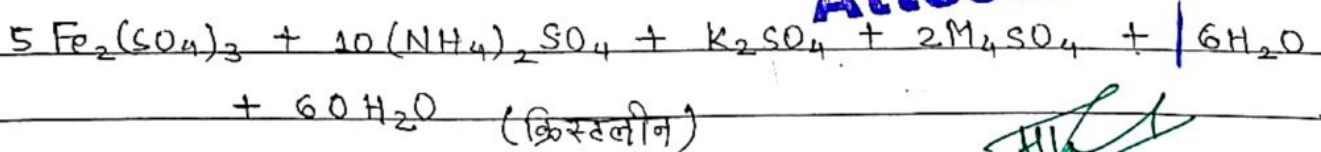 5 Fe₂(SO₄)₃ + 10(NH₄)₂SO₄ + K₂SO₄ + 2M₄SO₄ + 6H₂O
+ 60H₂O (क्रिस्टलीन)